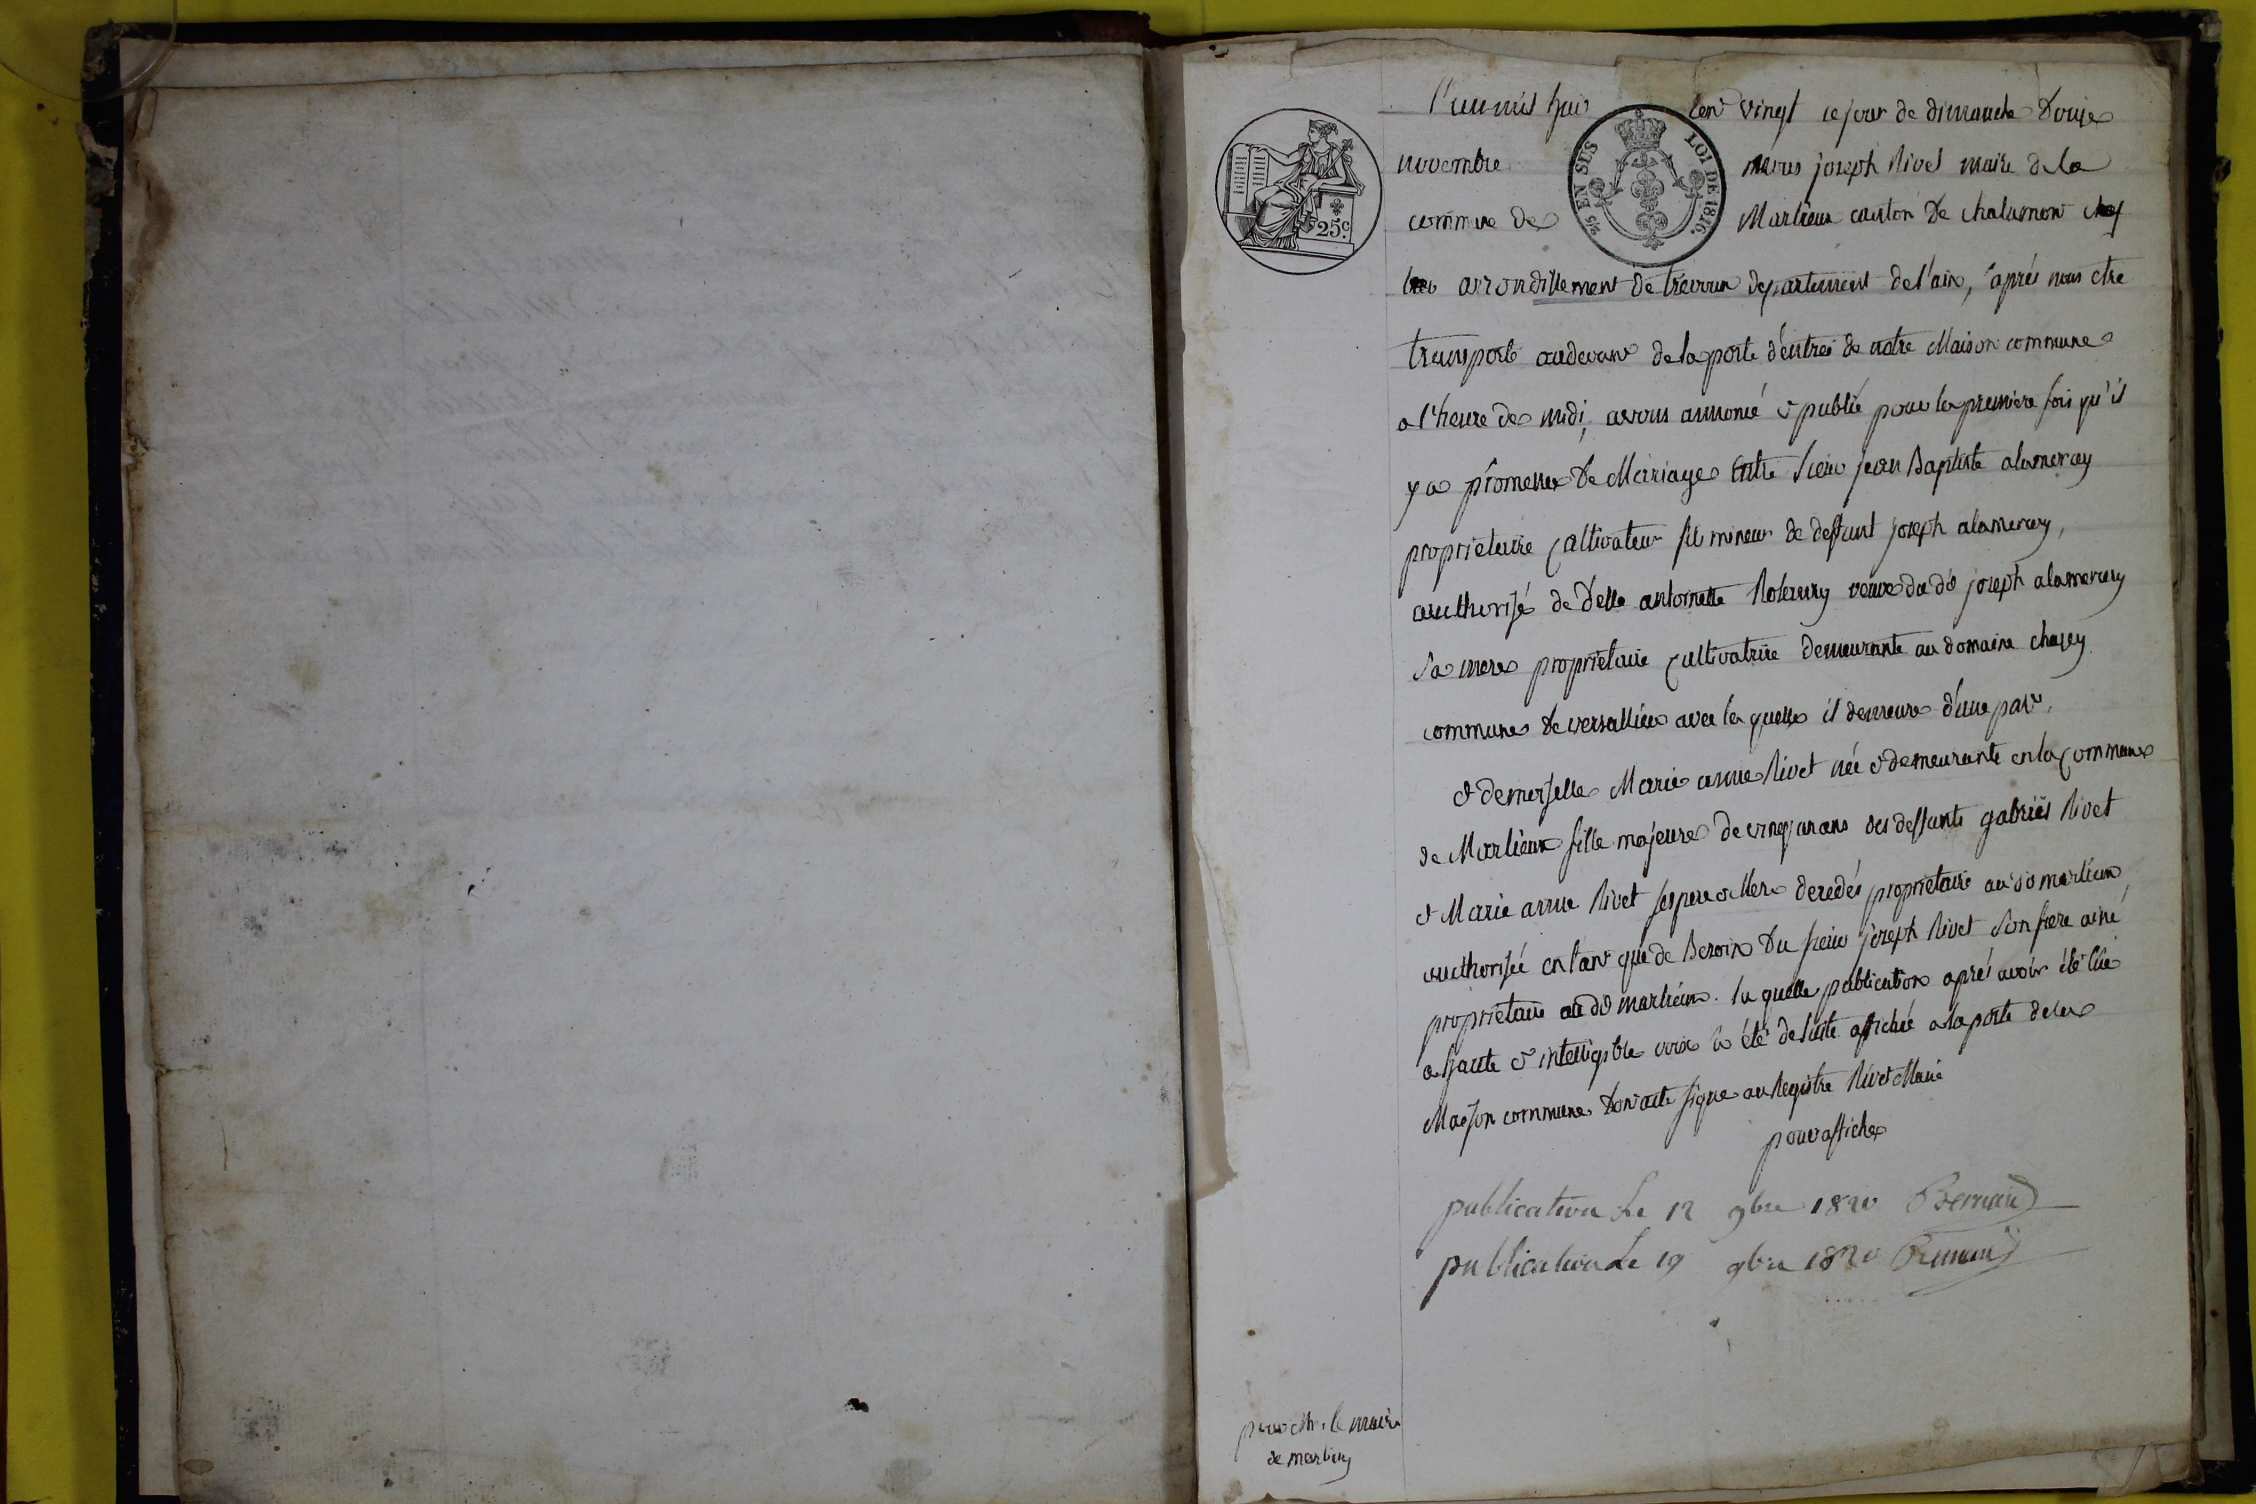 l'an mil huit cent vingt ce jour de dimanche douze
novembre nous joseph Rivet maire de la
commune de Marlieux canton de chalamont
arrondissement de trevoux departement de l'ain, après nous etre
transporté audevant de la porte d'entrée de notre Maison commune
a l'heure de midi, avons annoncé & publié pour la premiere fois qu'il
y a promesse de Mariage Entre sieur jean Baptiste alamercery
proprietaire cultivateur fils mineur de deffunt joseph alamercery,
authorisé de d'elle antoinette veuve du dt joseph alamercery
sa mere proprietaire cultivatrice demeurante au domaine
commune de versallieu avec la quelle il demeure d'une part,
& demoiselle Marie anne Rivet née & demeurante en la commune
de Marlieux fille majeure de ans des deffunts gabriël Rivet
& Marie anne Rivet ses pere & Mere decedés proprietaire au dt marlieux,
authorisée en tant que de Besoin Du sieur joseph Rivet son frere ainé
proprietaire au dt marlieux. la quelle publication après avoir été lüe
a haute & intelligible voix a été de suite affichée a la porte de la
Maison commune dont acte signe au Registre Rivet Maire
pour affiche
publication Le 12 9bre 1820 Bernard
publication Le 19 9bre 1820 Bernard
25c.
EN SUS
LOI DE 1816.
pour Mr. le maire
de marlieux